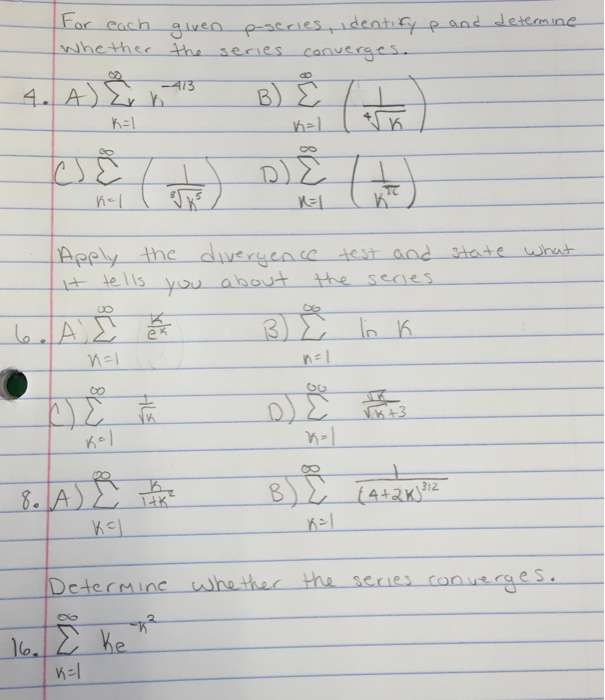 For each given p-series, identify p and determine
whether the series converges.
4. A) ∞ Σ k=1 k^(-4/3) B) ∞ Σ k=1 (1/⁴√k)
C) ∞ Σ k=1 (1/³√k⁵) D) ∞ Σ k=1 (1/k^π)
Apply the divergence test and state what
it tells you about the series
6. A) ∞ Σ k=1 k/e^k B) ∞ Σ k=1 ln k
C) ∞ Σ k=1 1/√k D) ∞ Σ k=1 √k/(√k+3)
8. A) ∞ Σ k=1 k/(1+k²) B) ∞ Σ k=1 1/(4+2k)^(3/2)
Determine whether the series converges.
16. ∞ Σ k=1 ke^(-k²)